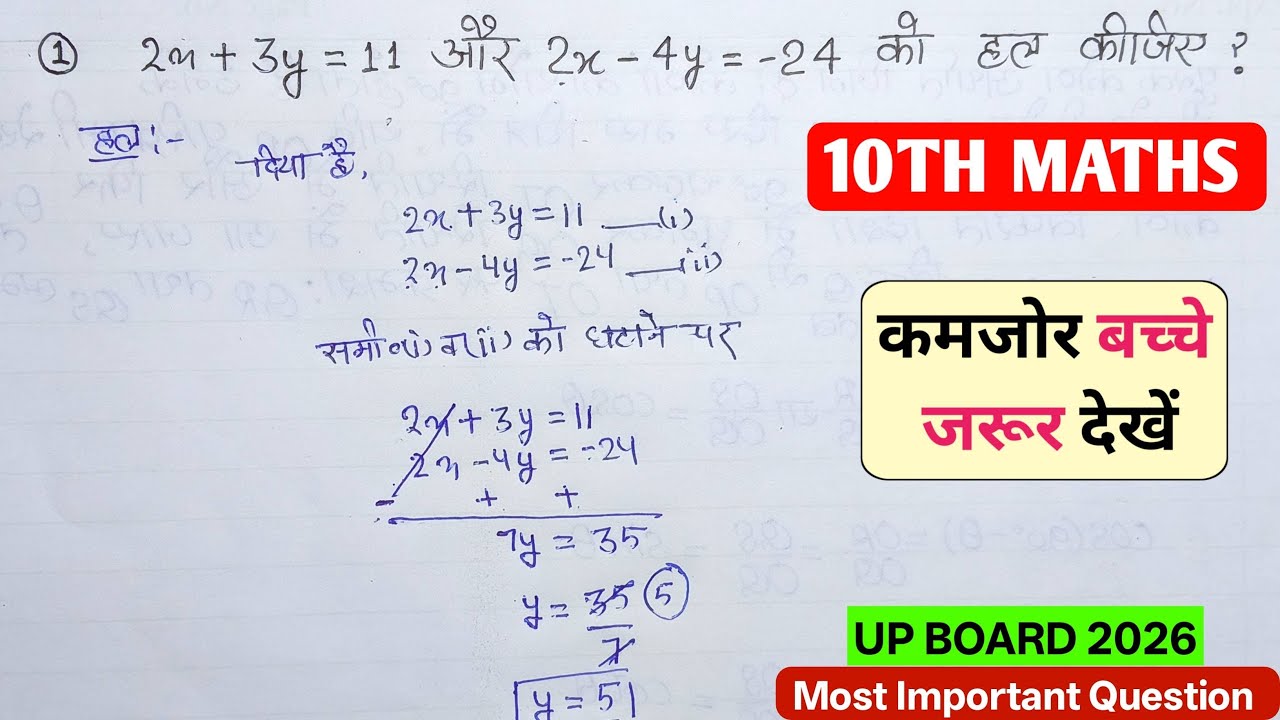 ① 2x + 3y = 11 और 2x - 4y = -24 को हल कीजिए ?
हल :-
दिया है,
2x + 3y = 11 ___(i)
2x - 4y = -24 ___(ii)
समी०(i) व (ii) को घटाने पर
2x + 3y = 11
2x - 4y = -24
- + +
7y = 35
y = 35 5
7
y = 5
10TH MATHS
कमजोर बच्चे
जरूर देखें
UP BOARD 2026
Most Important Question